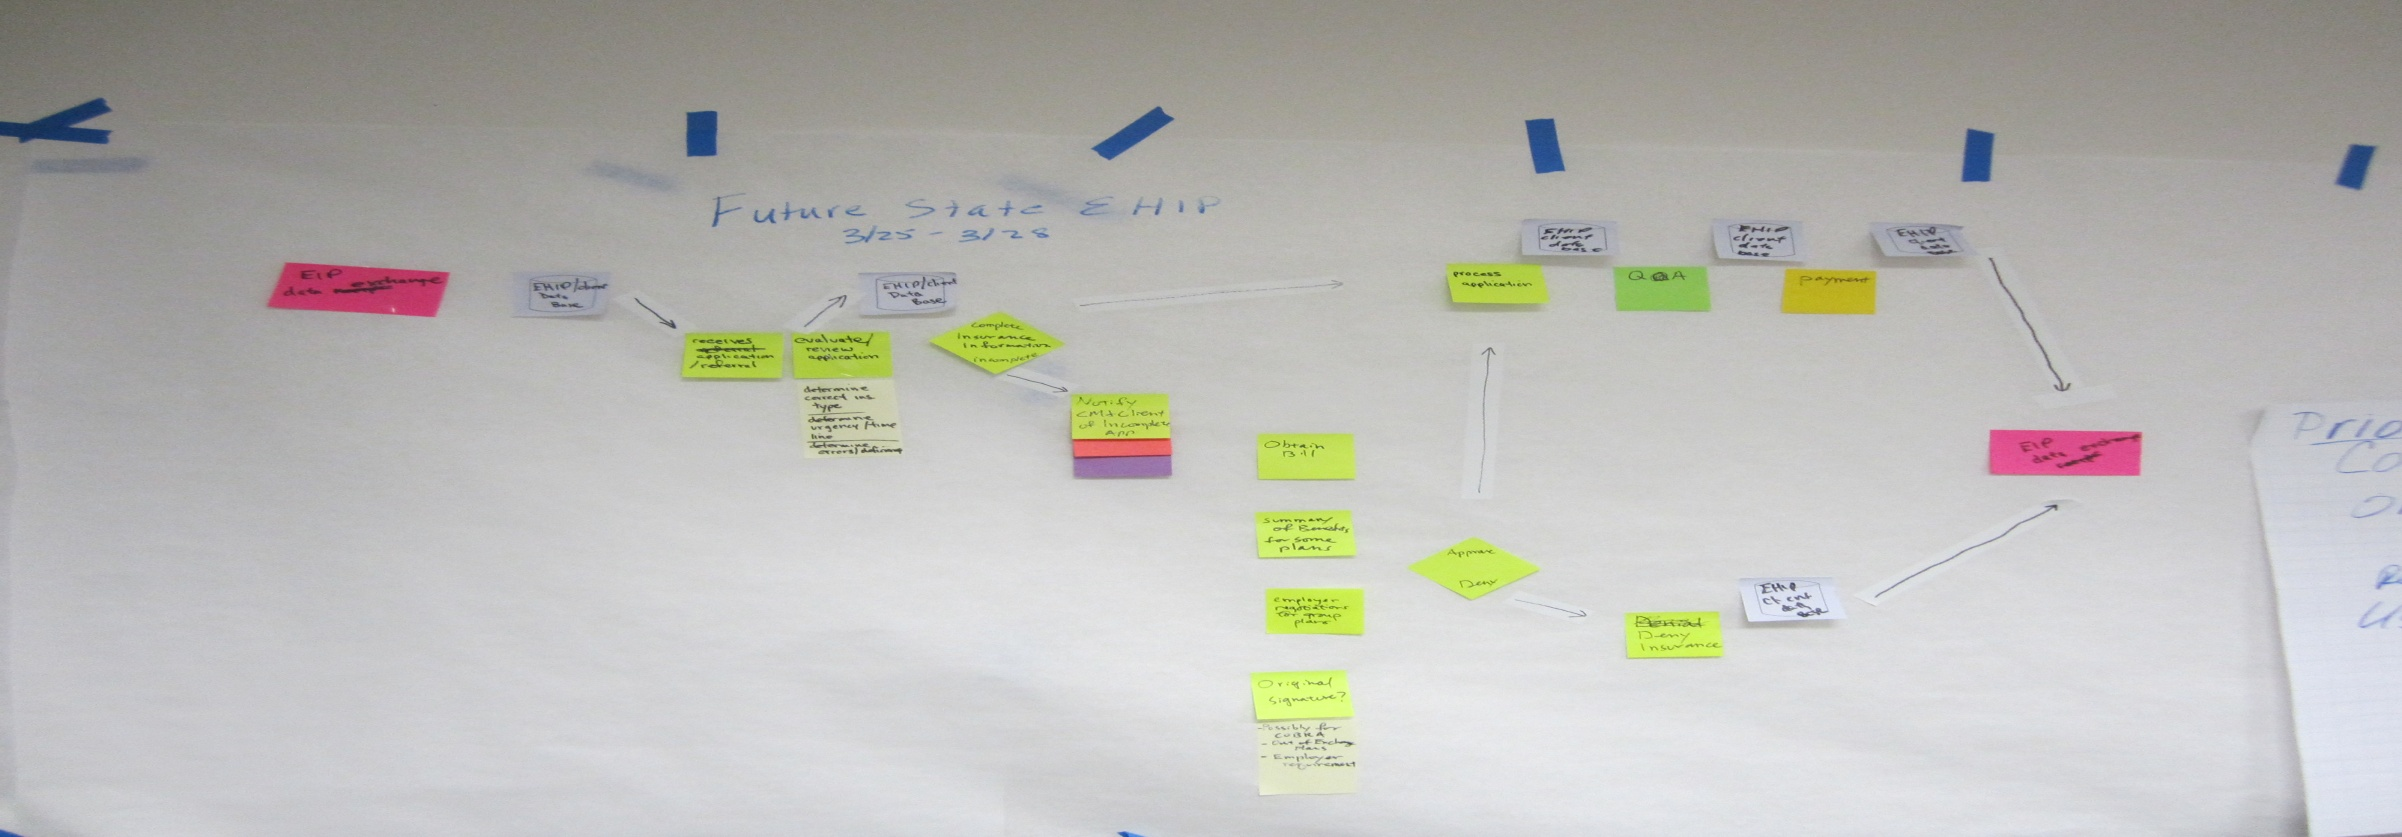 Future State EHIP
3/25 - 3/28
EIP
data exchange
EHIP/client
Data
Base
receives
referral
application
/referral
evaluate/
review
application
determine
correct ins
type
determine
urgency/time
line
determine
errors/
EHIP/client
Data
Base
Complete
Insurance
Information
incomplete
Notify
CM+Client
of Incomplete
App
Obtain
Bill
summary
of Benefits
for some
plans
employer
negotiations
for group
plans
Original
Signature?
- Possibly for
COBRA
- Out of Exchange
Plans
- Employer
requirement
process
application
EHIP
client
data
base
Q A
EHIP
client
data
base
payment
EHIP
client
data
base
Approve
Deny
Denial
Deny
Insurance
EHIP
client
data
base
EIP
data exchange
Prio
Co